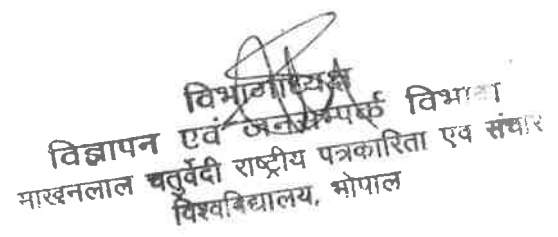 विभागाध्यक्ष
विज्ञापन एवं जनसम्पर्क विभाग
माखनलाल चतुर्वेदी राष्ट्रीय पत्रकारिता एवं संचार
विश्वविद्यालय, भोपाल